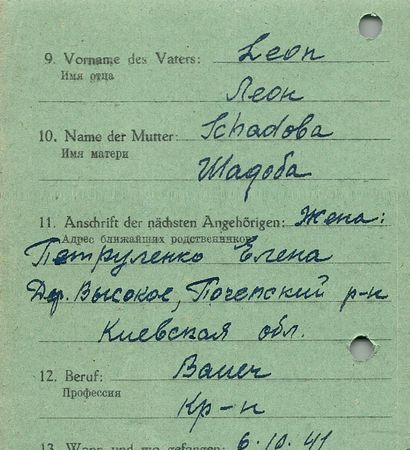 9. Vorname des Vaters: Leon
Имя отца
Леон
10. Name der Mutter: Schadova
Имя матери
Шадова
11. Anschrift der nächsten Angehörigen: Жена:
Адрес ближайших родственников
Петруленко Елена
Дер. Высокое, Почепский р-н
Киевская обл.
12. Beruf: Bauer
Профессия
Кр-н
13. Wann und wo gefangen: 6.10.41